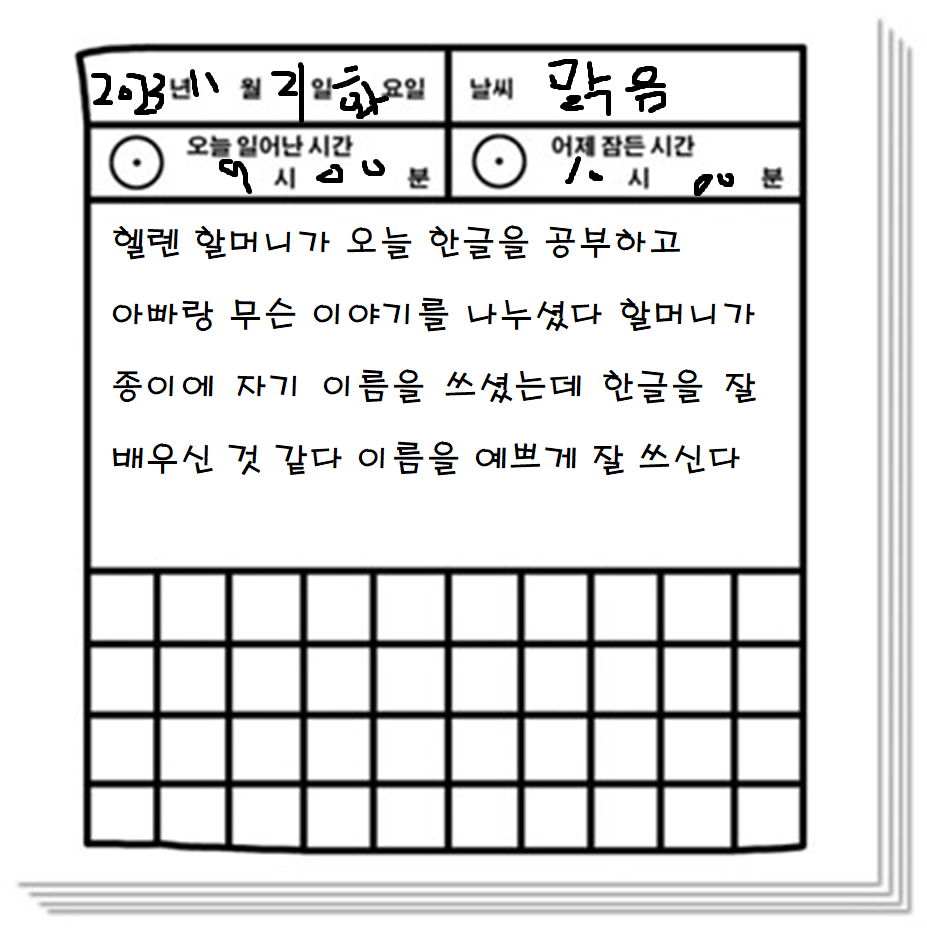 2023년 11월 21일 화요일 날씨 맑음
오늘 일어난 시간 어제 잠든 시간
9시 00분 10시 00분
헬렌 할머니가 오늘 한글을 공부하고
아빠랑 무슨 이야기를 나누셨다 할머니가
종이에 자기 이름을 쓰셨는데 한글을 잘
배우신 것 같다 이름을 예쁘게 잘 쓰신다